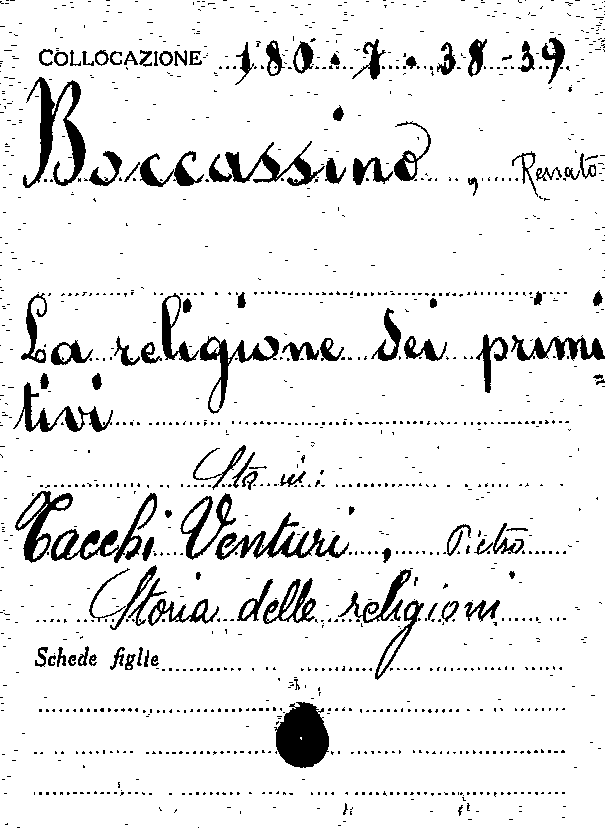 COLLOCAZIONE 180.7.38-39
Boccassino, Renato
La religione dei primi=
tivi
Sta in:
Tacchi Venturi, Pietro
Storia delle religioni
Schede figlie